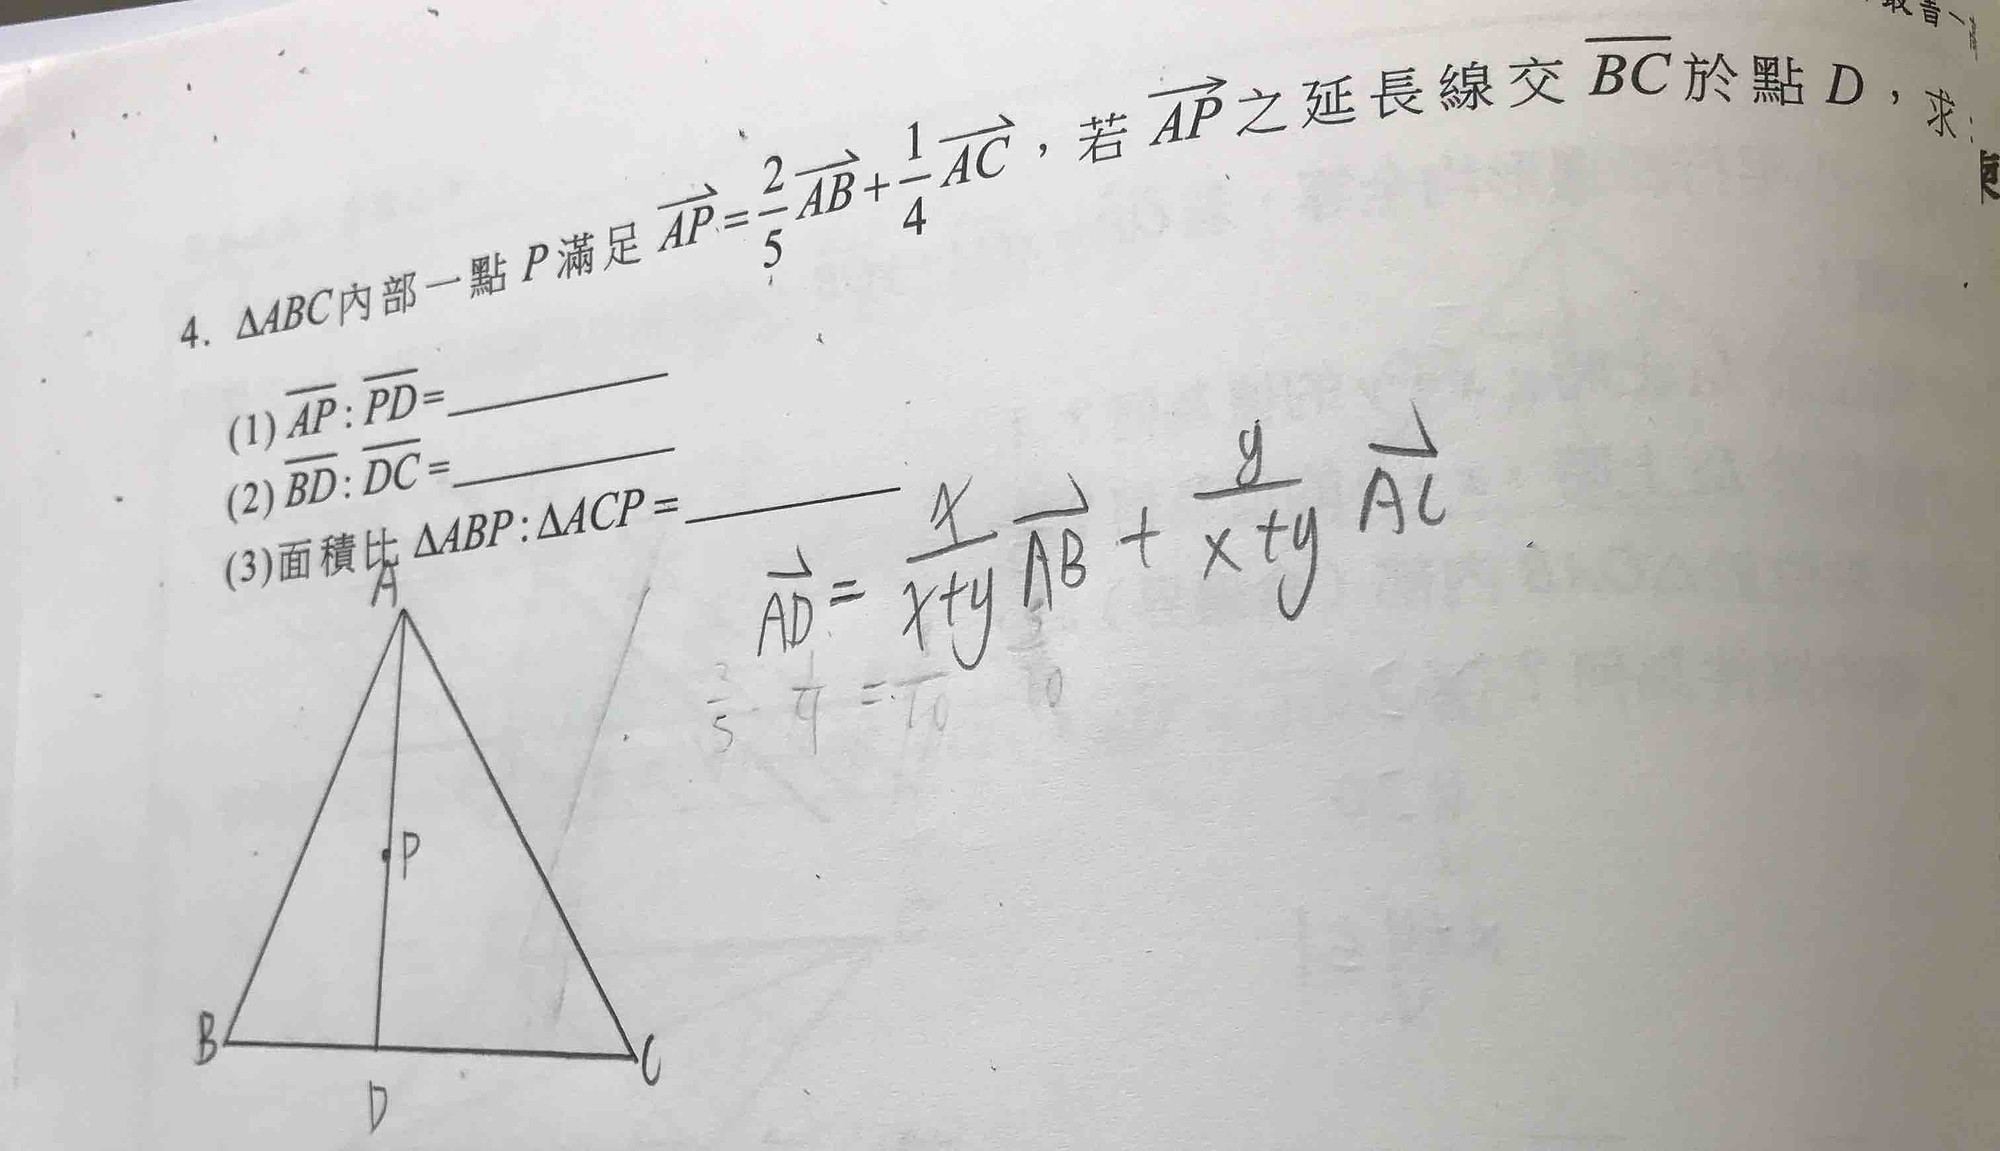 4. ΔABC內部一點P滿足 AP = 2/5 AB + 1/4 AC，若 AP 之延長線交 BC 於點 D，求:
(1) AP : PD =
(2) BD : DC =
(3)面積比 ΔABP : ΔACP =
AD = x/x+y AB + y/x+y AC
A
P
B
C
D